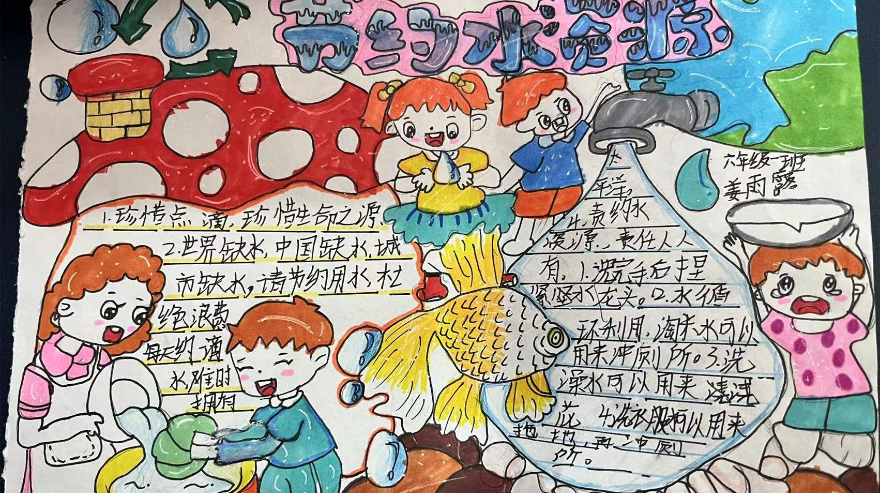 节约水资源
六年级一班
姜雨露
1.珍惜点滴,珍惜生命之源
2.世界缺水,中国缺水,城
市缺水,请节约用水,杜
绝浪费
每天约滴
水,难时
拥有
4.节约水
资源,责任人人
有.1.洗完手后捏
紧坚水龙头。2.水循
环利用,淘米水可以
用来冲厕所。3.洗
澡水可以用来浇
花 4.洗衣服可以用来
拖地,再冲厕
所。